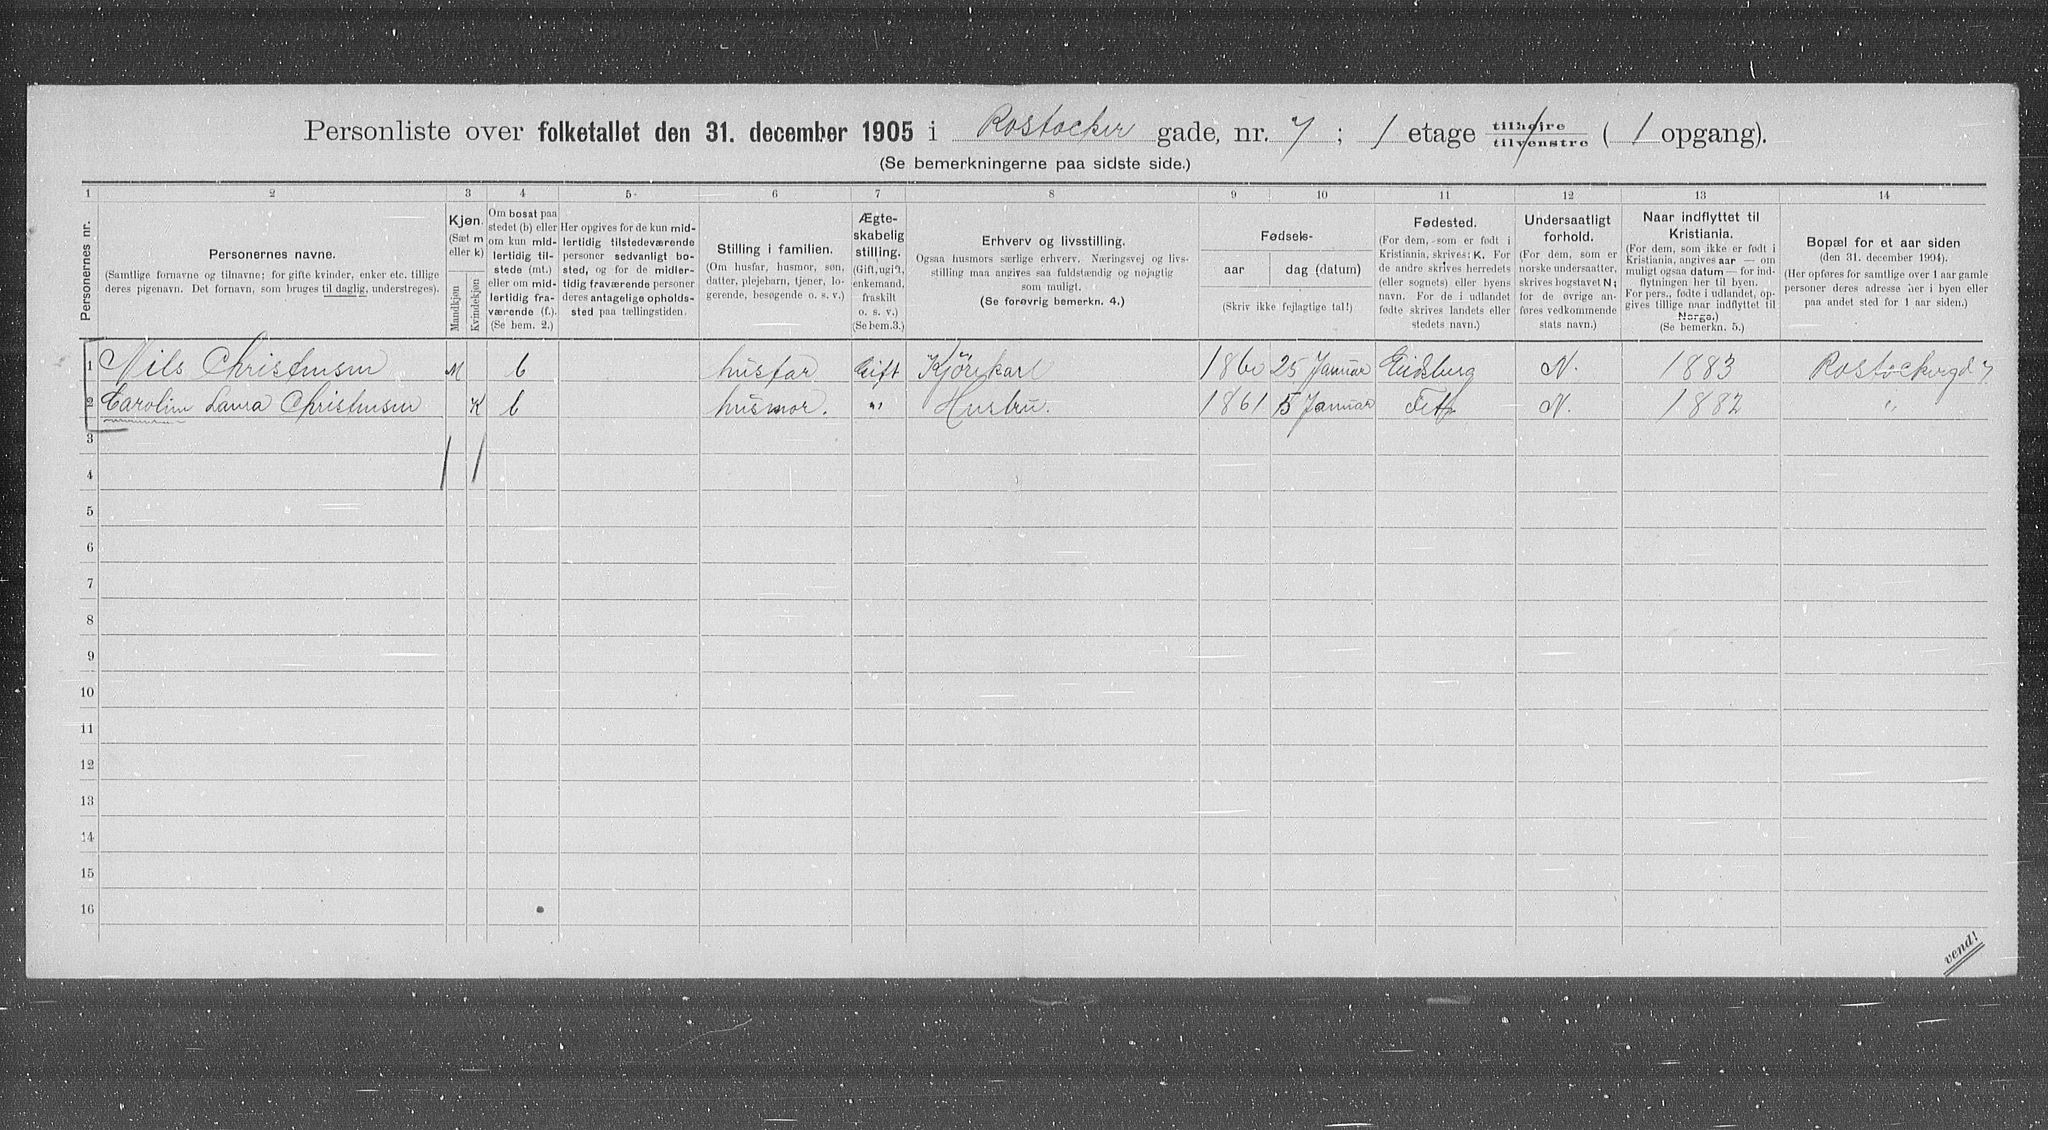 Personliste over folketallet den 31. december 1905 i Rostocker gade, nr. 7; 1 etage tilhøjre tilvenstre (1 opgang).
(Se bemerkningerne paa sidste side.)
1 2 3 4 5 6 7 8 9 10 11 12 13 14
Personernes nr.
Personernes navne.
(Samtlige fornavne og tilnavne; for gifte kvinder, enker etc. tillige
deres pigenavn. Det fornavn, som bruges til daglig, understreges).
Kjøn.
(Sæt m
eller k)
Mandkjøn
Kvindekjøn
Om bosat paa
stedet (b) eller
om kun mid-
lertidig til-
stede (mt.)
eller om mid-
lertidig fra-
værende (f.).
(Se bem. 2.)
Her opgives for de kun mid-
lertidig tilstedeværende
personer sedvanligt bo-
sted, og for de midler-
tidig fraværende personer
deres antagelige opholds-
sted paa tællingstiden.
Stilling i familien.
(Om husfar, husmor, søn,
datter, plejebarn, tjener, lo-
gerende, besøgende o. s. v.)
Ægte-
skabelig
stilling.
(Gift, ugift,
enkemand,
fraskilt
o. s. v.)
(Se bem.3.)
Erhverv og livsstilling.
Ogsaa husmors særlige erhverv. Næringsvej og livs-
stilling maa angives saa fuldstændig og nøjagtig
som muligt.
(Se forøvrig bemerkn. 4.)
Fødsels-
aar
dag (datum)
(Skriv ikke fejlagtige tal!)
Fødested.
(For dem, som er født i
Kristiania, skrives: K. For
de andre skrives herredets
(eller sognets) eller byens
navn. For de i udlandet
fødte skrives landets eller
stedets navn.)
Undersaatligt
forhold.
(For dem, som er
norske undersaatter,
skrives bogstavet N;
for de øvrige an-
føres vedkommende
stats navn.)
Naar indflyttet til
Kristiania.
(For dem, som ikke er født i
Kristiania, angives aar — om
muligt ogsaa datum — for ind-
flytningen her til byen.
For pers., fødte i udlandet, op-
gives tillige naar indflyttet til
Norge.)
(Se bemerkn. 5.)
Bopæl for et aar siden
(den 31. december 1904).
(Her opføres for samtlige over 1 aar gamle
personer deres adresse her i byen eller
paa andet sted for 1 aar siden.)
1 Nils Christensen M b husfar Gift Kjørekarl 1860 25 Januar Eidsberg N. 1883 Rostockergd 7
2 Caroline Laura Christensen K b husmor. " Hustru. 1861 5 Januar Fet N. 1882 "
3
4
5
6
7
8
9
10
11
12
13
14
15
16
vend!